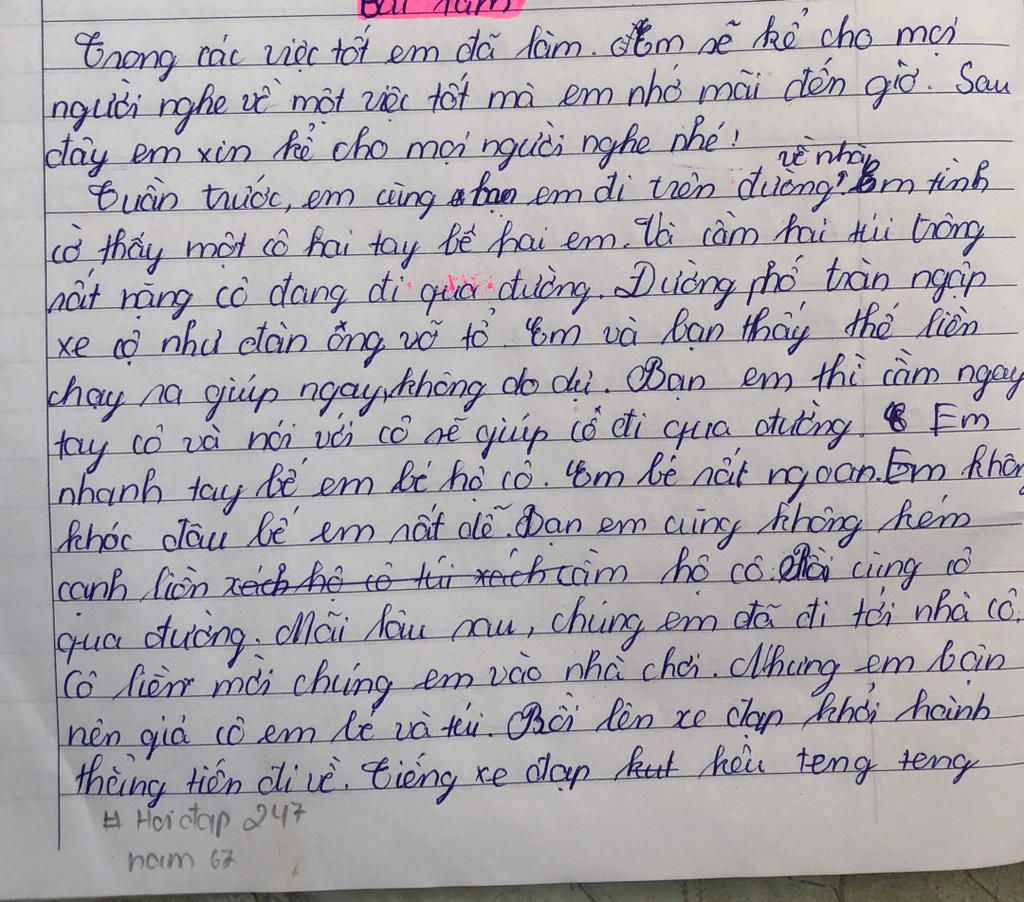 Bài làm
Trong các việc tốt em đã làm. Em sẽ kể cho mọi
người nghe về một việc tốt mà em nhớ mãi đến giờ. Sau
đây em xin kể cho mọi người nghe nhé!
về nhà
Tuần trước, em cùng bạn em đi trên đường. Em tình
cờ thấy một cô hai tay bế hai em. Và cầm hai túi trông
rất nặng cô đang đi qua đường. Đường phố tràn ngập
xe cộ như đàn ong vỡ tổ. Em và bạn thấy thế liền
chạy ra giúp ngay, không do dự. Bạn em thì cầm ngay
tay cô và nói với cô sẽ giúp cô đi qua đường. Em
nhanh tay bế em bé hộ cô. Em bé rất ngoan. Em khôn
khóc đâu bế em rất dễ. Bạn em cũng không kém
cạnh liền xách hộ cô túi xách cầm hộ cô. Rồi cùng cô
qua đường. Mãi lâu sau, chúng em đã đi tới nhà cô.
Cô liền mời chúng em vào nhà chơi. Nhưng em bận
nên giả cô em bé và túi. Rồi lên xe đạp khởi hành
thẳng tiến đi về. Tiếng xe đạp kut kêu teng teng
# Hoidap 247
nam 67